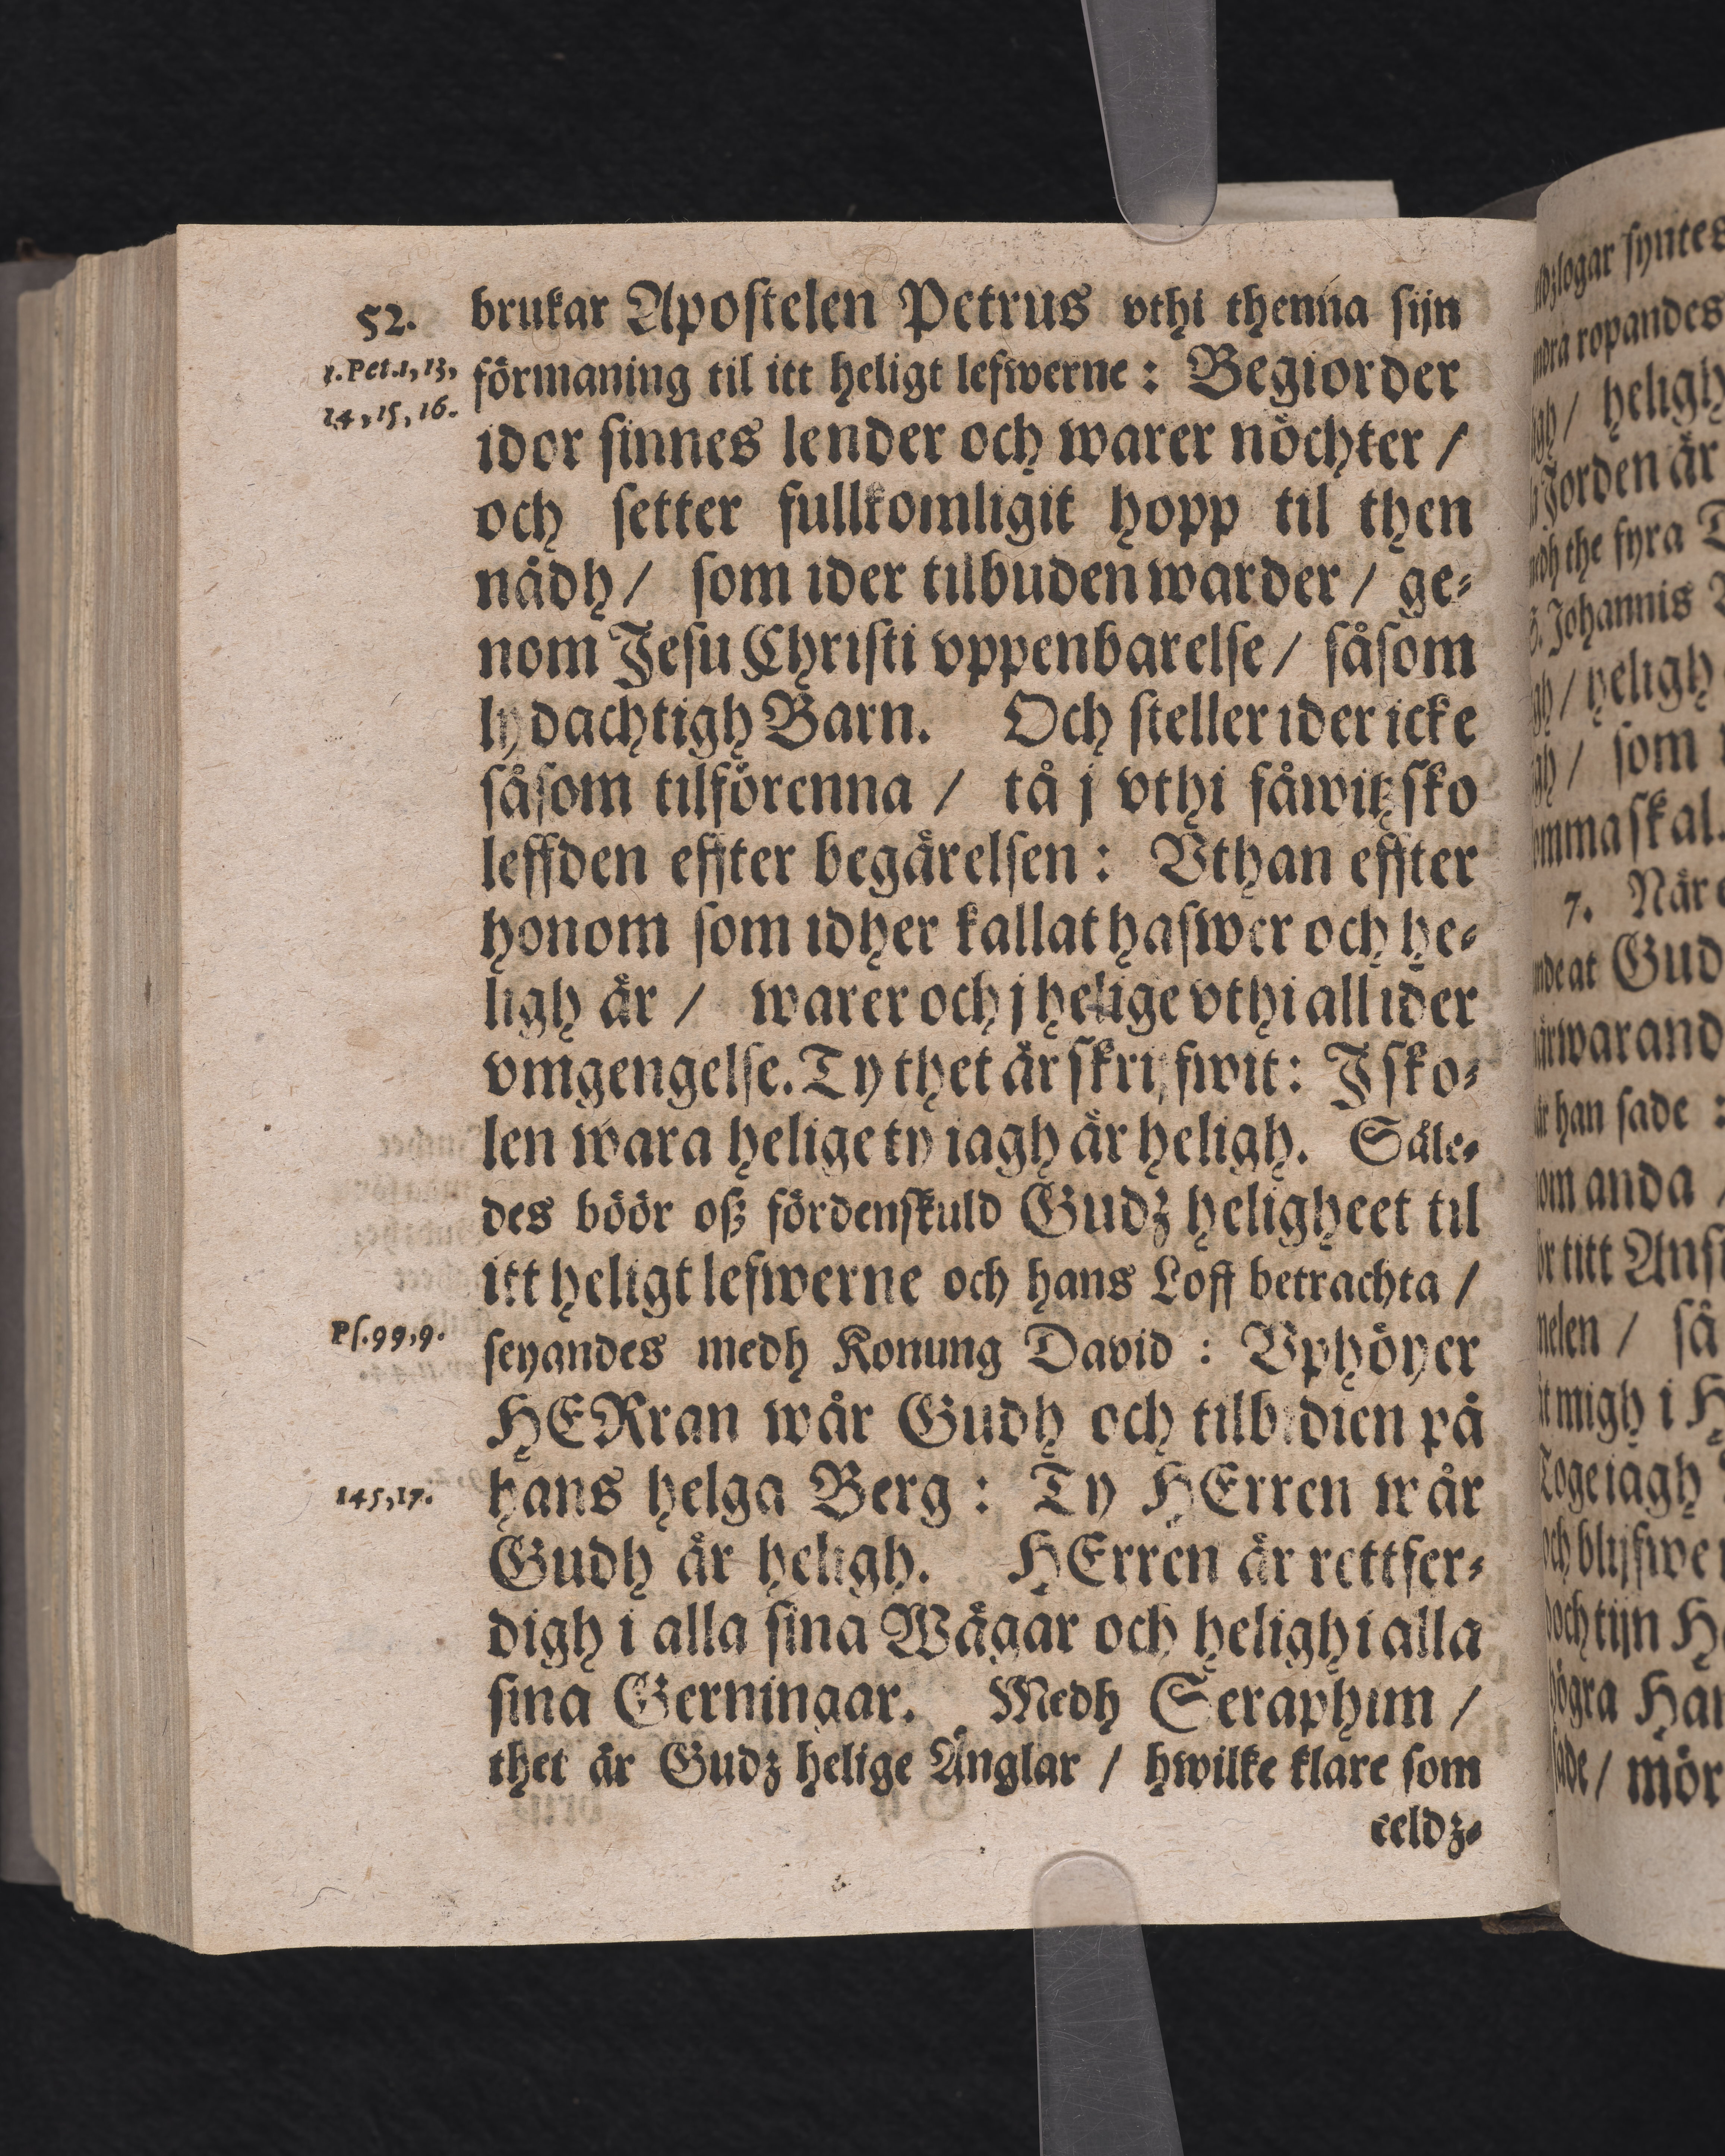 52.
brukar Apostelen Petrus vthi thenna sijn
1. Pet. 1, 13,
förmaning til itt heligt lefwerne : Begiorder
14, 15, 16.
idor sinnes lender och warer nöchter /
och setter fullkomligit hopp til then
nådh / som ider tilbuden warder / ge-
nom Jesu Christi vppenbarelse / såsom
lydachtigh Barn. Och steller ider icke
såsom tilförenna / tå j vthi fåwitzsko
leffden effter begärelsen : Vthan effter
honom som idher kallat hafwer och he-
ligh är / warer och j helige vthi all ider
vmgengelse. Ty thet är skrifwit: J sko-
len wara helige ty iagh är heligh. Såle-
des böör oß fördenskuld Gudz heligheet til
itt heligt lefwerne och hans Loff betrachta /
Ps. 99, 9.
seyandes medh Konung David : Vphöyer
HERran wår Gudh och tilbidien på
145, 17.
hans helga Berg : Ty HErren wår
Gudh är heligh. HErren är rettfer-
digh i alla sina Wägar och heligh i alla
sina Gerningar. Medh Seraphim /
thet är Gudz helige Änglar / hwilke klare som
eeldz-
syntes
ropandes
/ heligh
Jorden är
the fyra
Johannis
/ heligh
/ som
skal.
7. När
at Gud
han sade :
anda /
titt
/ så
migh i
iagh
och tijn
/ mör